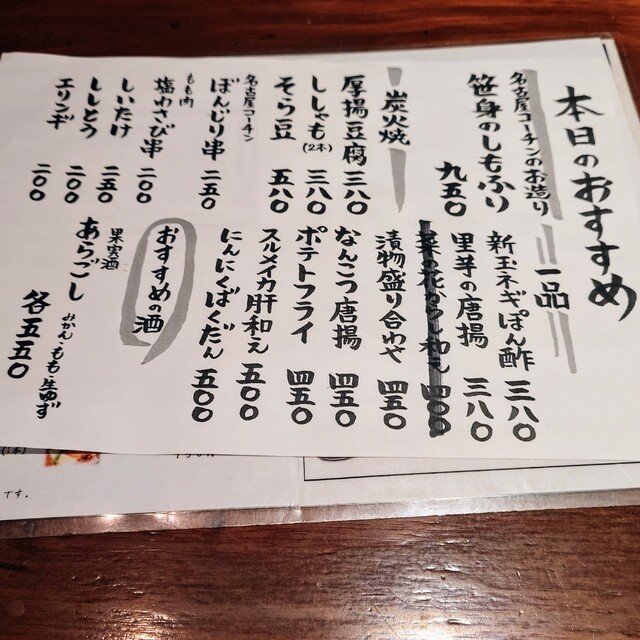 本日のおすすめ
名古屋コーチンのお造り
笹身のしもふり 九五〇
炭火焼
厚揚豆腐 三八〇
ししゃも(2本) 三八〇
そら豆 五八〇
名古屋コーチン
ぼんじり串 二五〇
もも肉
塩わさび串 二〇〇
しいたけ 二五〇
ししとう 二〇〇
エリンギ 二〇〇
一品
新玉ネギぽん酢 三八〇
里芋の唐揚 三八〇
菜の花からし和え 四〇〇
漬物盛り合わせ 四五〇
なんこつ唐揚 四五〇
ポテトフライ 四五〇
スルメイカ肝和え 五〇〇
にんにくばくだん 五〇〇
おすすめの酒
果実酒
あらごし みかん もも 生ゆず
各五五〇
です。